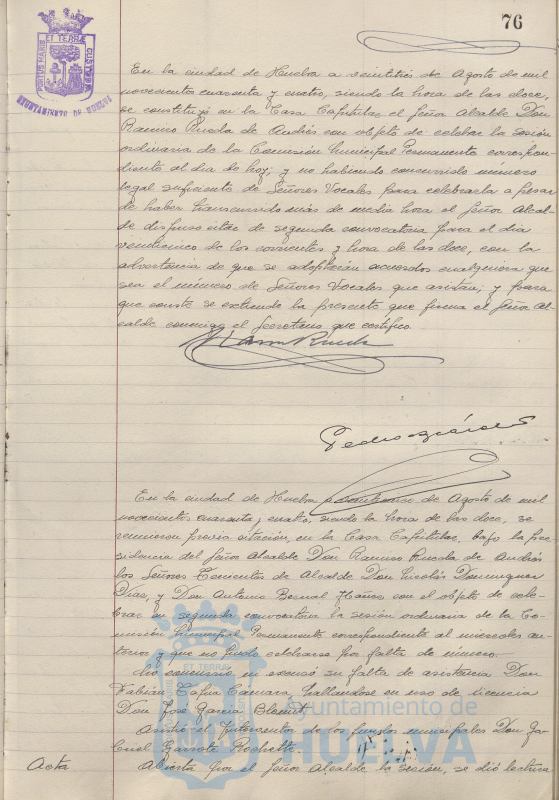 76
PORTUS MARIS ET TERRÆ CUSTODIA
AYUNTAMIENTO DE HUELVA
En la ciudad de Huelva a veintitres de Agosto de mil
novecientos cuarenta y cuatro, siendo la hora de las doce,
se constituyó en la Casa Capitular, el Señor Alcalde Don
Ramiro Rueda de Andrés con objeto de celebrar la sesión
ordinaria de la Comisión Municipal Permanente correspon-
diente al dia de hoy, y no habiendo concurrido número
legal suficiente de Señores Vocales para celebrarla a pesar
de haber transcurrido más de media hora el Señor Alcal-
de dispuso citar de segunda convocatoria para el dia
veinticinco de los corrientes y hora de las doce, con la
advertencia de que se adoptarán acuerdos cualquiera que
sea el número de Señores Vocales que asistan; y para
que conste se extiende la presente que firma el Señor Al-
calde conmigo el Secretario que certifico.
Ramiro Rueda
Pedro
En la ciudad de Huelva a veinticinco de Agosto de mil
novecientos cuarenta y cuatro, siendo la hora de las doce, se
reunieron previa citación, en la Casa Capitular, bajo la pre-
sidencia del Señor Alcalde Don Ramiro Rueda de Andrés
los Señores Tenientes de Alcalde Don Nicolás Dominguez
Dias, y Don Antonio Bernal Mañes con el objeto de cele-
brar en segunda convocatoria la sesión ordinaria de la Co-
misión Municipal Permanente correspondiente al miercoles an-
terior y que no pudo celebrarse por falta de número.
No concurrió ni excusó su falta de asistencia Don
Fabian Tapia Camara hallandose en uso de licencia
Don José Garcia
Asistió el Interventor de los fondos municipales Don Ga-
briel Garrote
Acta Abierta por el Señor Alcalde la Sesión, se dió lectura
Ayuntamiento de
HUELVA